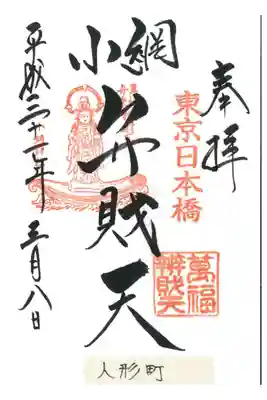 奉拝
東京日本橋
小網
弁財天
萬福
辨財天
平成三十一年 三月八日
人形町